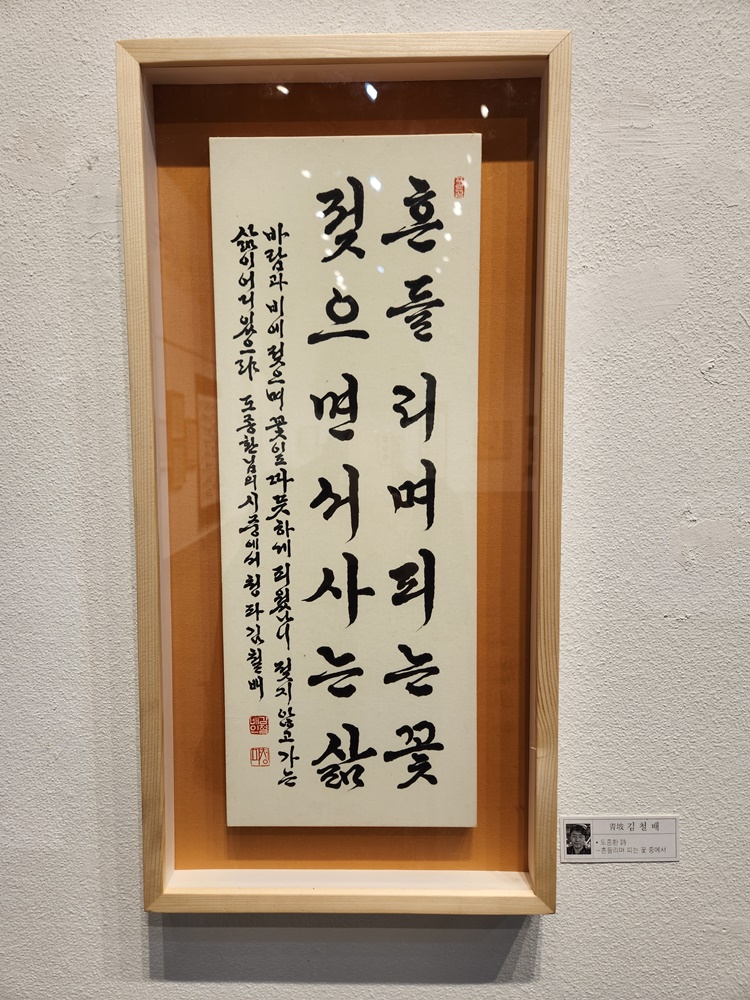 흔들리며피는꽃
젖으면서사는삶
바람과 비에 젖으며 꽃잎 따뜻하게 피웠나니 젖지 않고 가는
삶이 어디 있으랴 도종환님의 시 중에서 청파 김철배
青坡 김철배
• 도종환 詩
-흔들리며 피는 꽃 중에서